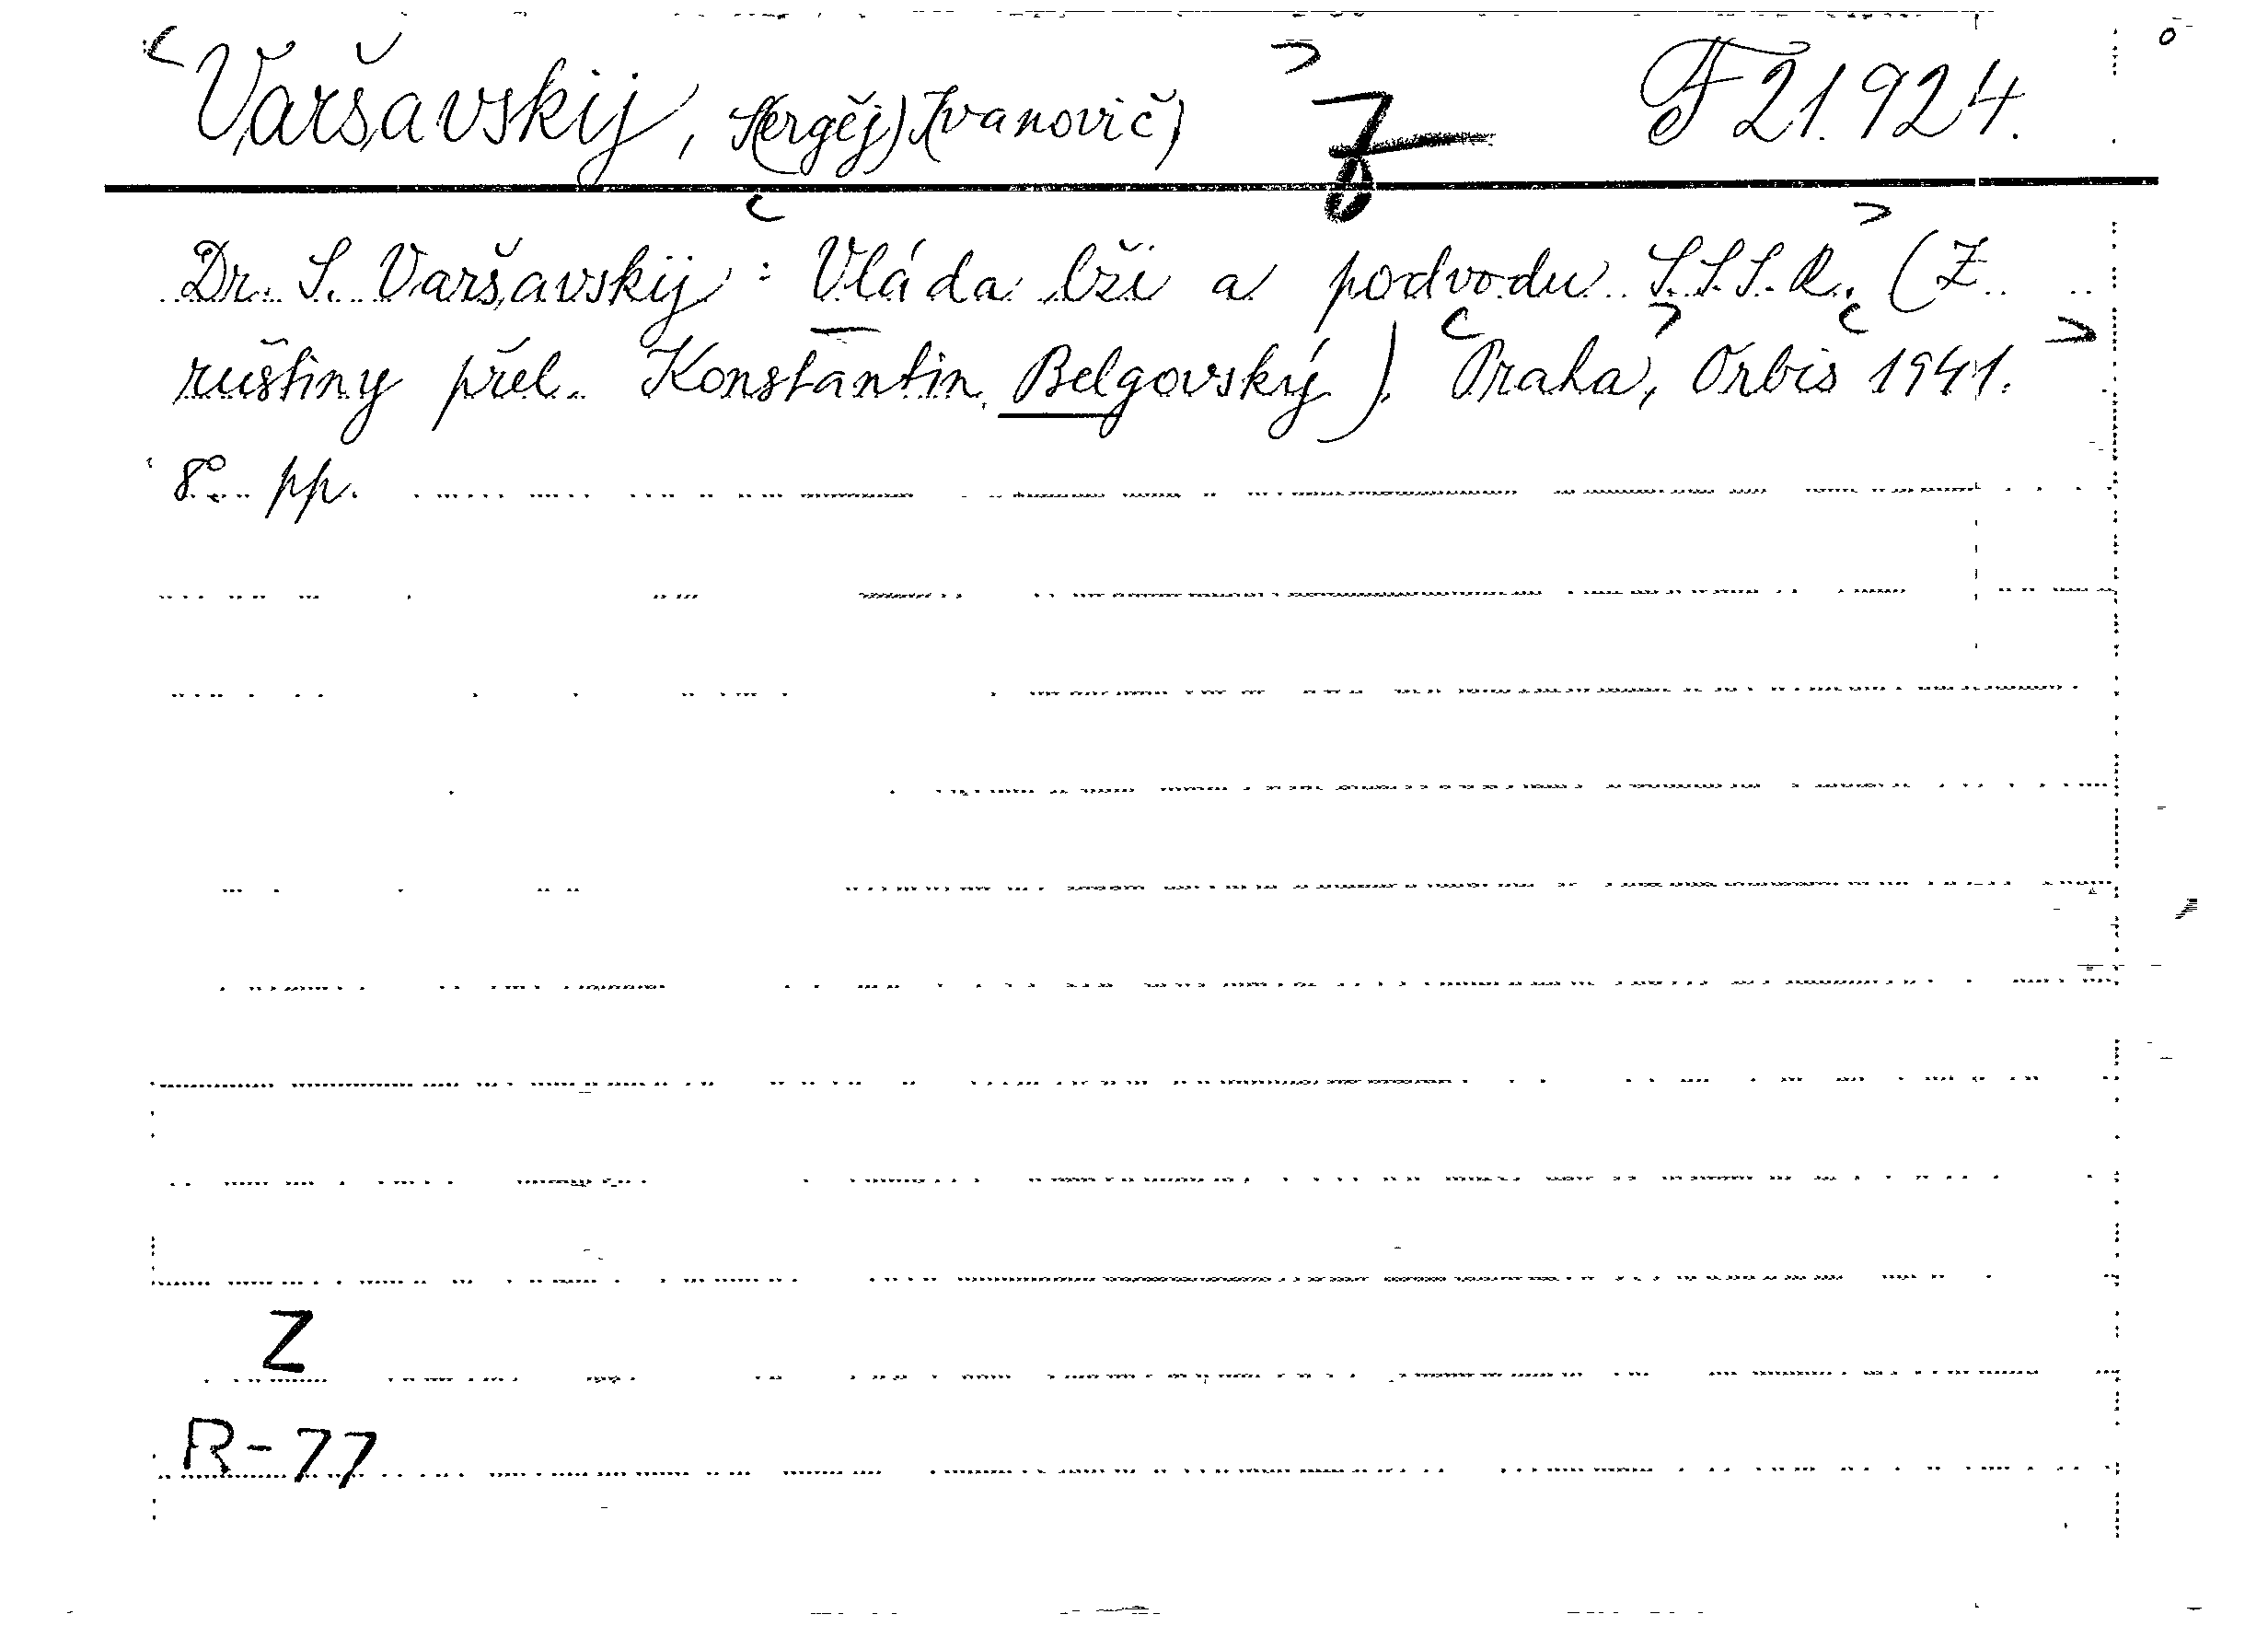 Varšavskij, S(ergěj) I(vanovič) F 21.924.
Dr. S. Varšavskij: Vláda lži a podvodu S.S.S.R. (Z
ruštiny přel. Konstantin Belgovský). Praha, Orbis 1941.
8° pp.
Z
R-77